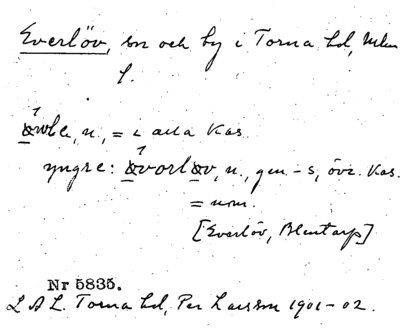 Everlöv, sn och by i Torna hd, Mlm
l.
n., = i alla kas.
yngre: n., gen. -s, övr. kas.
= nom.
[Everlöv, Blentarp]
Nr 5835.
L A L. Torna hd, Per Larsson 1901-02.